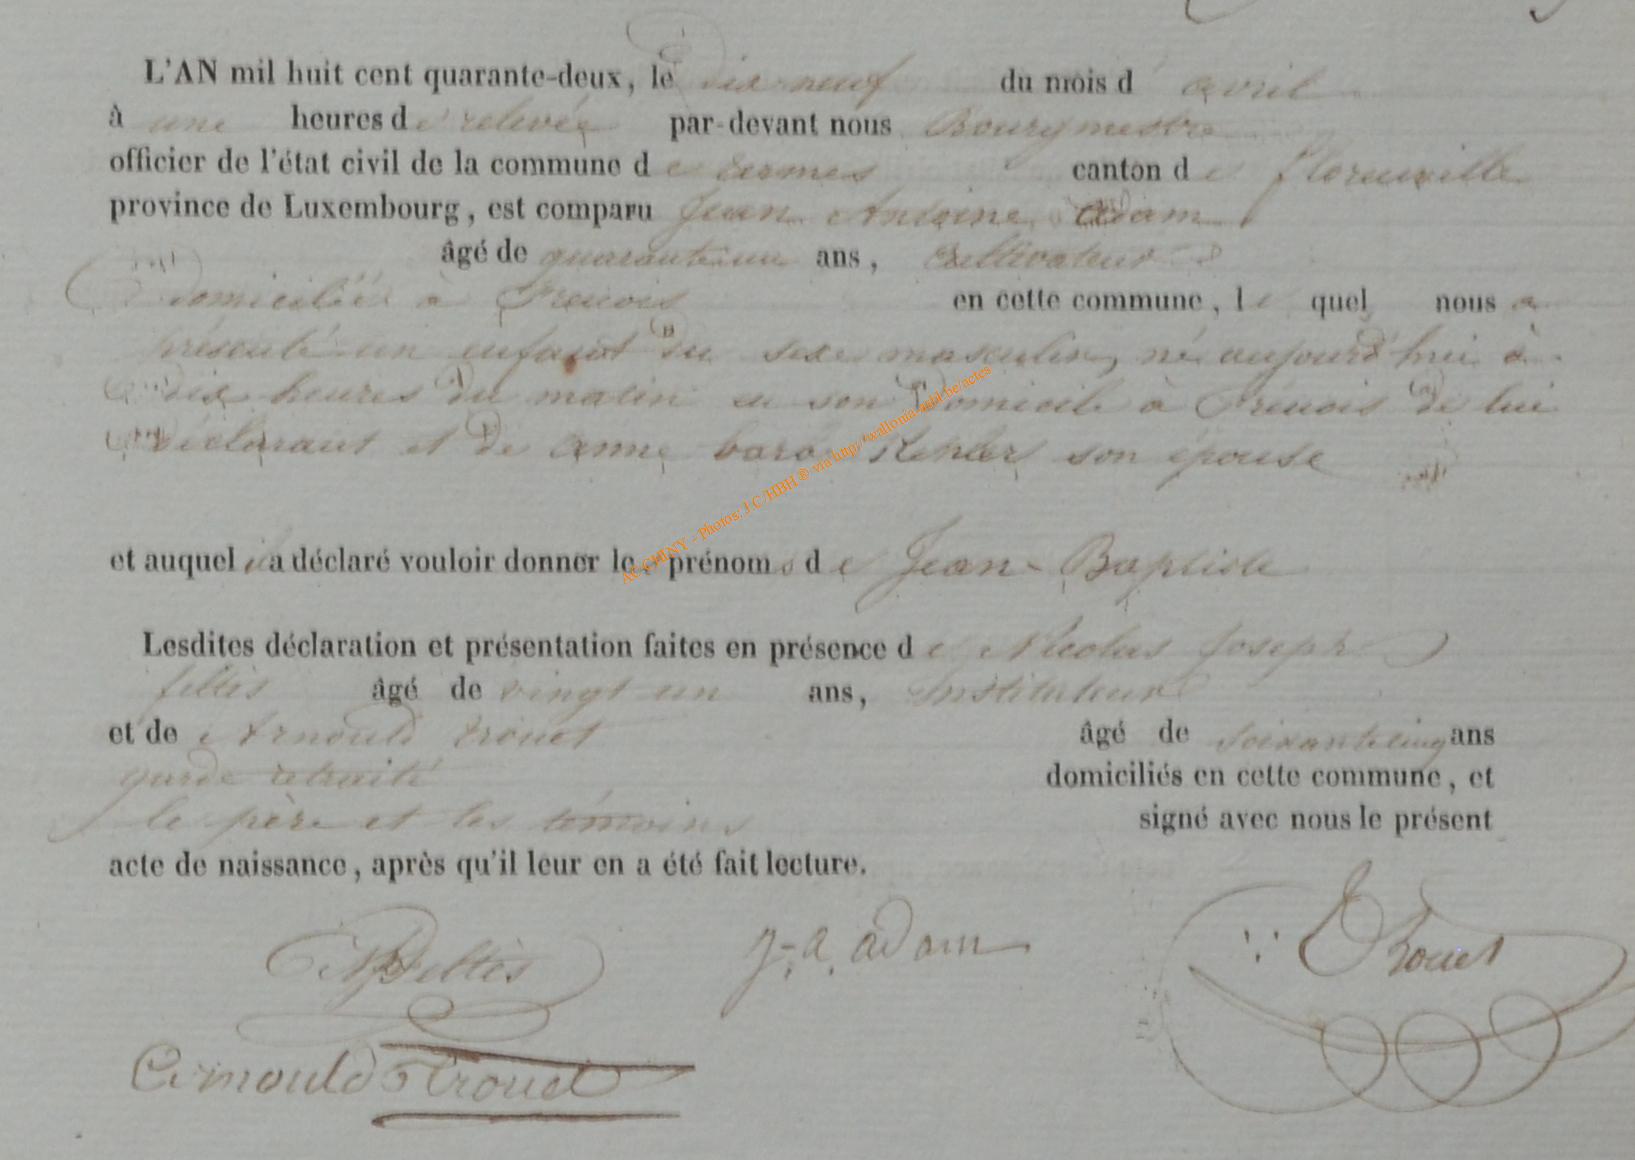 L'AN mil huit cent quarante-deux, le dix neuf du mois d'avril
à une heures de relevée par-devant nous Bourgmestre
officier de l'état civil de la commune de termes canton de florenville
province de Luxembourg, est comparu Jean Antoine adam
âgé de quarante un ans, Cultivateur
domicilié à Frenois en cette commune, lequel nous a
présenté un enfant du sexe masculin, né aujourd'hui à
dix heures du matin en son domicile à Frenois de lui
déclarant et de anne barbe son épouse
et auquel il a déclaré vouloir donner les prénoms de Jean-Baptiste
Lesdites déclaration et présentation faites en présence de Nicolas Joseph
feltis âgé de vingt un ans, Instituteur
et de Arnould trouet âgé de soixante cinq ans
garde retraité domiciliés en cette commune, et
le père et les témoins signé avec nous le présent
acte de naissance, après qu'il leur en a été fait lecture.
j-a. adam
Arnould trouet
AC CHINY - Photos: J C/HBH ® via http://wallonia.asbl.be/actes